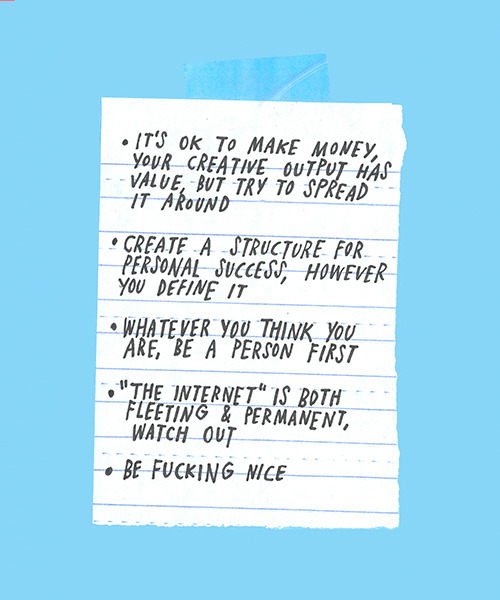 • IT'S OK TO MAKE MONEY,
YOUR CREATIVE OUTPUT HAS
VALUE, BUT TRY TO SPREAD
IT AROUND
• CREATE A STRUCTURE FOR
PERSONAL SUCCESS, HOWEVER
YOU DEFINE IT
• WHATEVER YOU THINK YOU
ARE, BE A PERSON FIRST
• "THE INTERNET" IS BOTH
FLEETING & PERMANENT,
WATCH OUT
• BE FUCKING NICE